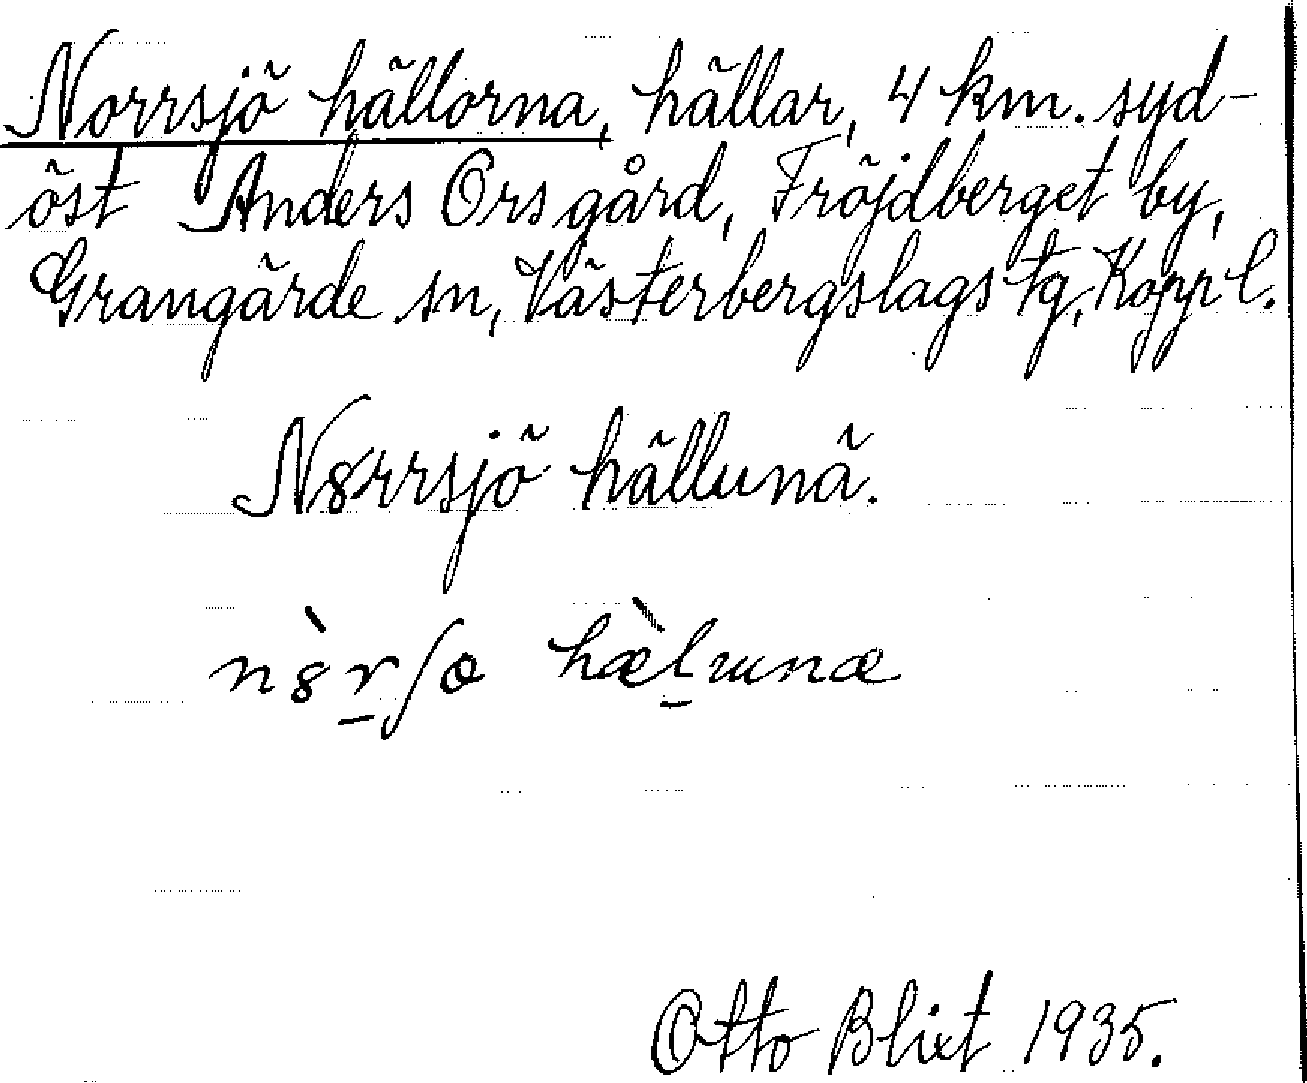 Norrsjö hällorna, hällar, 4 km. syd-
öst Anders Ors gård, Fröjdberget by,
Grangärde sn, Västerbergslags tg, Kopp l.
N8rrsjö hällunä.
n8̀r̠ʃö hæ̀l̠unæ
Otto Blixt 1935.